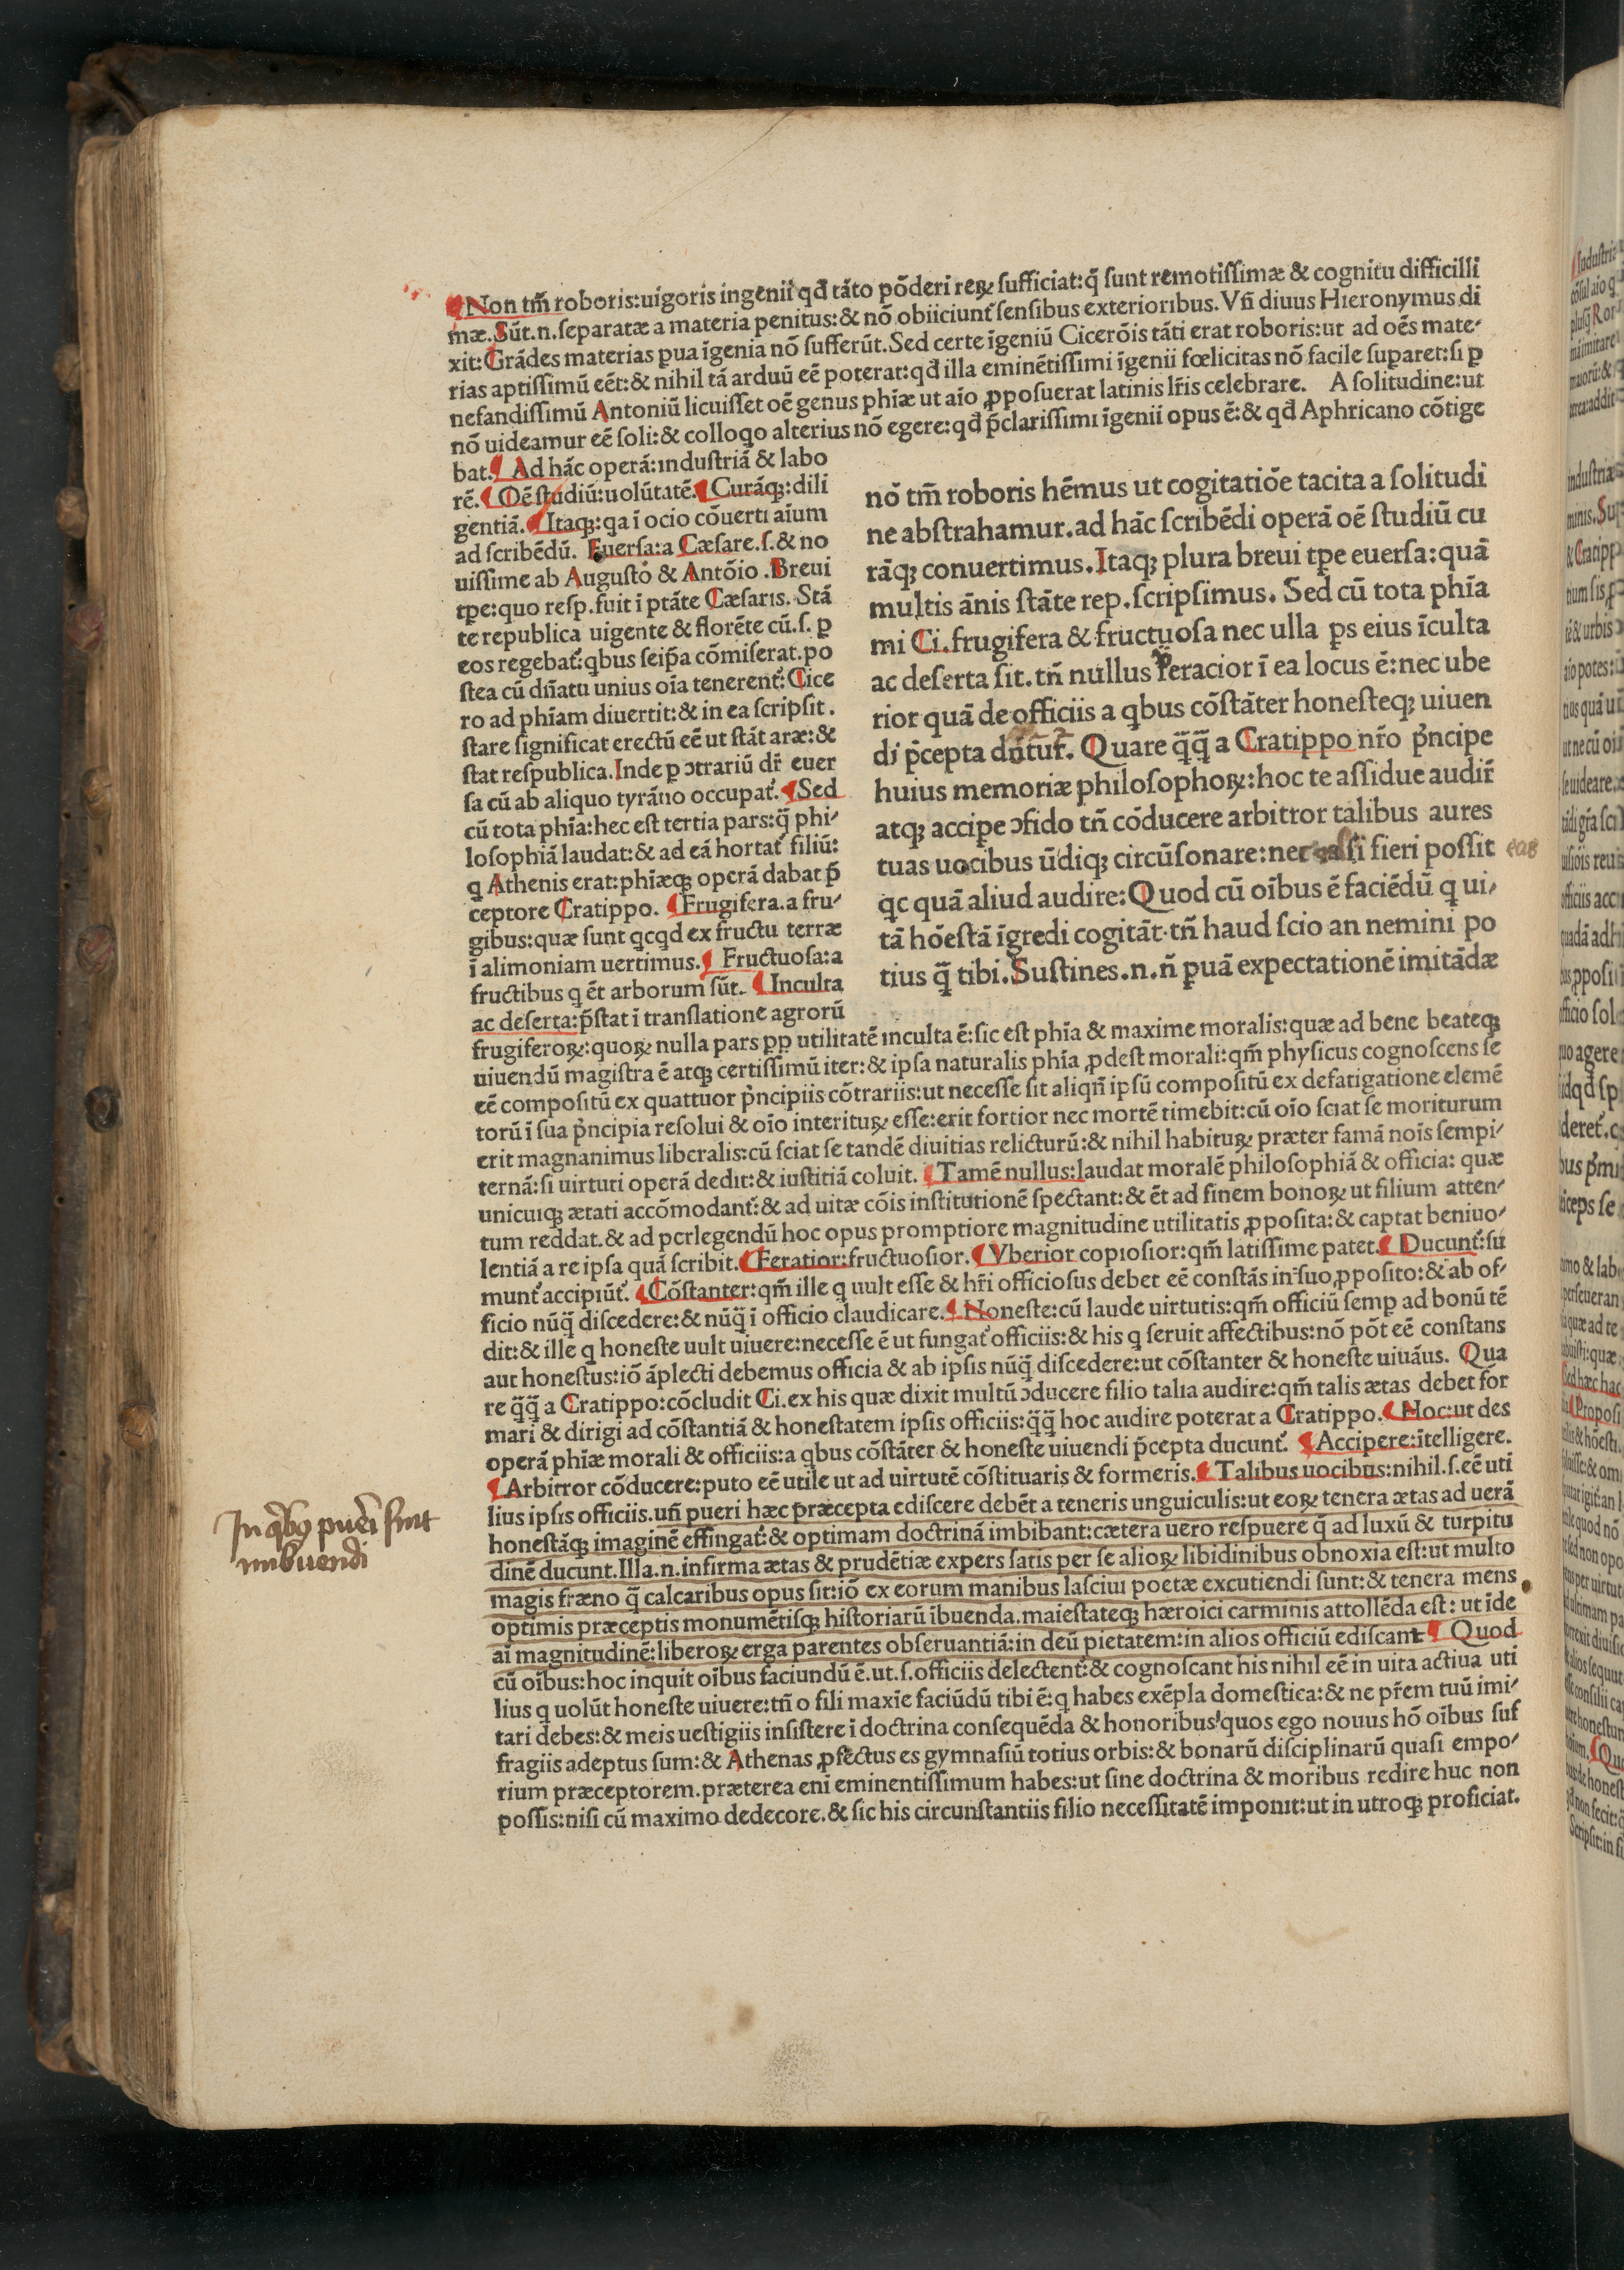 ¶Non tm̄ roboris:uigoris ingenii qđ tāto pōderi reꝝ sufficiat:q̄ sunt remotissimæ & cognitu difficilli
mæ.Sūt.n.separatæ a materia penitus:& nō obiiciunt᷑ sensibus exterioribus.Vn̄ diuus Hieronymus di
xit:Grādes materias ꝑua īgenia nō sufferūt.Sed certe īgeniū Cicerōis tāti erat roboris:ut ad oēs mate⸗
rias aptissimū eēt:& nihil tā arduū eē poterat:qđ illa eminētissimi īgenii fœlicitas nō facile superet:si ꝑ
nefandissimū Antoniū licuisset oē genus phīæ ut aīo ꝓposuerat latinis lr̄is celebrare. A solitudine:ut
nō uideamur eē soli:& colloqo alterius nō egere:qđ p̄clarissimi īgenii opus ē:& qđ Aphricano cōtige
bat.¶ Ad hāc operā:industriā & labo
rē.¶ Oē studiū:uolūtatē.¶ Curāqꝫ:dili
gentiā.¶ Itaqꝫ:qa ī ocio cōuerti aīum
ad scribēdū. Euersa:a Cæsare.s.& no
uissime ab Augusto & Antōio .Breui
tꝑe:quo resp.fuit ī ptāte Cæsaris. Stā
te republica uigente & florēte cū.s. ꝑ
eos regebat᷑:qbus seip̄a cōmiserat.po
stea cū dn̄atu unius oīa tenerent᷑: Cice
ro ad phīam diuertit:& in ea scripsit.
stare significat erectū eē ut stāt aræ:&
stat respublica.Inde ꝑ ↄtrariū dr̄ euer
sa cū ab aliquo tyrāno occupat᷑.¶Sed
cū tota phīa:hec est tertia pars:q̄ phi⸗
losophiā laudat:& ad eā hortat᷑ filiū:
q Athenis erat:phīæqꝫ operā dabat p̄
ceptore Cratippo. ¶Frugifera.a fru⸗
gibus:quæ sunt qcqd ex fructu terræ
ī alimoniam uertimus.¶ Fructuosa:a
fructibus q ēt arborum sūt. ¶Inculta
ac deserta:p̄stat ī translatione agrorū
nō tm̄ roboris hēmus ut cogitatiōe tacita a solitudi
ne abstrahamur.ad hāc scribēdi operā oē studiū cu
rāqꝫ conuertimus.Itaqꝫ plura breui tꝑe euersa:quā
multis ānis stāte rep.scripsimus. Sed cū tota phīa
mi Ci.frugifera & fructuosa nec ulla ꝑs eius īculta
ac deserta sit.tn̄ nullus feracior ī ea locus ē:nec ube
rior quā de officiis a qbus cōstāter honesteqꝫ uiuen
di p̄cepta dūtur᷑. Quare q̄q̄ a Cratippo nr̄o p̄ncipe
huius memoriæ philosophoꝝ:hoc te assidue audir̄
atqꝫ accipe ↄfido tn̄ cōducere arbitror talibus aures
tuas uocibus ūdiqꝫ circūsonare:nec eas si fieri possit eas
qc quā aliud audire:Quod cū oībus ē faciēdū q ui⸗
tā hōestā īgredi cogitāt.tn̄ haud scio an nemini po
tius q̄ tibi.Sustines.n.n̄ ꝑuā expectationē imitādæ
frugiferoꝝ:quoꝝ nulla pars ꝓp utilitatē inculta ē:sic est phīa & maxime moralis:quæ ad bene beateqꝫ
uiuendū magistra ē atqꝫ certissimū iter:& ipsa naturalis phīa ꝓdest morali:qm̄ physicus cognoscens se
eē compositū ex quattuor p̄ncipiis cōtrariis:ut necesse sit aliqn̄ ipsū compositū ex defatigatione elemē
torū ī sua p̄ncipia resolui & oīo interituꝝ esse:erit fortior nec mortē timebit:cū oīo sciat se moriturum
erit magnanimus liberalis:cū sciat se tandē diuitias relicturū:& nihil habituꝝ præter famā noīs sempi⸗
ternā:si uirtuti operā dedit:& iustitiā coluit. ¶Tamē nullus:laudat moralē philosophiā & officia: quæ
unicuiqꝫ ætati accōmodant᷑:& ad uitæ cōis institutionē spectant:& ēt ad finem bonoꝝ ut filium atten⸗
tum reddat.& ad perlegendū hoc opus promptiore magnitudine utilitatis ꝓposita:& captat beniuo⸗
lentiā a re ipsa quā scribit.¶Feratior:fructuosior.¶Vberior copiosior:qm̄ latissime patet.¶Ducunt᷑:su
munt᷑ accipiūt᷑. ¶Cōstanter:qm̄ ille q uult esse & hr̄i officiosus debet eē constās in suo ꝓposito:& ab of⸗
ficio nūq̄ discedere:& nūq̄ ī officio claudicare.¶Honeste:cū laude uirtutis:qm̄ officiū semꝑ ad bonū tē
dit:& ille q honeste uult uiuere:necesse ē ut fungat᷑ officiis:& his q seruit affectibus:nō pōt eē constans
aut honestus:iō āplecti debemus officia & ab ipsis nūq̄ discedere:ut cōstanter & honeste uiuāus. Qua
re q̄q̄ a Cratippo:cōcludit Ci.ex his quæ dixit multū ↄducere filio talia audire:qm̄ talis ætas debet for
mari & dirigi ad cōstantiā & honestatem ipsis officiis:q̄q̄ hoc audire poterat a Cratippo.¶Hoc:ut des
operā phīæ morali & officiis:a qbus cōstāter & honeste uiuendi p̄cepta ducunt᷑. ¶Accipere:ītelligere.
¶Arbitror cōducere:puto eē utile ut ad uirtutē cōstituaris & formeris.¶Talibus uocibus:nihil.s.eē uti
lius ipsis officiis.un̄ pueri hæc præcepta ediscere debēt a teneris unguiculis:ut eoꝝ tenera ætas ad uerā
honestāqꝫ imaginē effingat᷑:& optimam doctrinā imbibant:cætera uero respuere q̄ ad luxū & turpitu
dinē ducunt.Illa.n.infirma ætas & prudētiæ expers satis per se alioꝝ libidinibus obnoxia est:ut multo
magis fræno q̄ calcaribus opus sit:iō ex eorum manibus lasciui poetæ excutiendi sunt:& tenera mens
optimis præceptis monumētisqꝫ historiarū ībuenda.maiestateqꝫ hæroici carminis attollēda est: ut īde
aī magnitudinē:liberoꝝ erga parentes obseruantiā:in deū pietatem:in alios officiū ediscant.¶ Quod
cū oībus:hoc inquit oībus faciundū ē.ut.s.officiis delectent᷑:& cognoscant his nihil eē in uita actiua uti
lius q uolūt honeste uiuere:tn̄ o fili maxīe faciūdū tibi ē:q habes exēpla domestica:& ne pr̄em tuū imi⸗
tari debes:& meis uestigiis insistere ī doctrina consequēda & honoribus quos ego nouus hō oībus suf
fragiis adeptus sum:& Athenas ꝓfectus es gymnasiū totius orbis:& bonarū disciplinarū quasi empo⸗
rium præceptorem.præterea enī eminentissimum habes:ut sine doctrina & moribus redire huc non
possis:nisi cū maximo dedecore.& sic his circunstantiis filio necessitatē imponit:ut in utroqꝫ proficiat.
In qbꝰ pueri sint
imbuendi